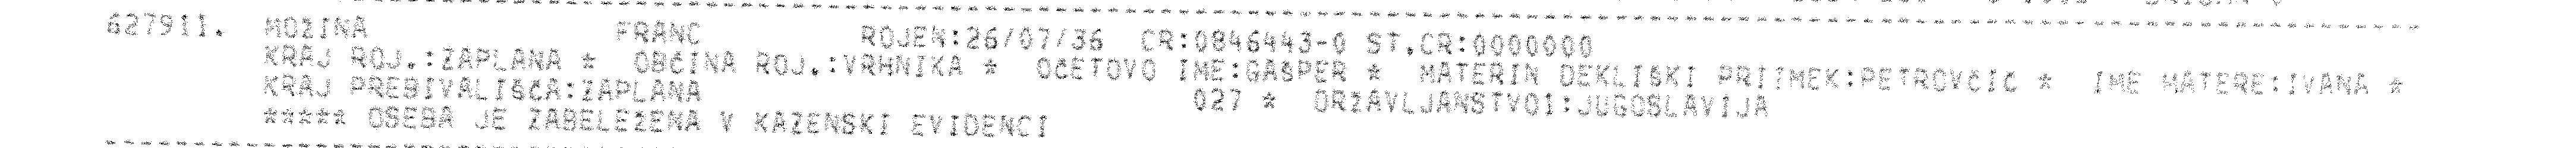 627911. MOŽINA FRANC ROJEN:26/07/36 CR:0846443-0 ST.CR:0000000
KRAJ ROJ.:ZAPLANA * OBČINA ROJ.:VRHNIKA * OČETOVO IME:GAŠPER * MATERIN DEKLIŠKI PRIIMEK:PETROVČIČ * IME MATERE:IVANA *
KRAJ PREBIVALIŠČA:ZAPLANA 027 * DRŽAVLJANSTVO1:JUGOSLAVIJA
***** OSEBA JE ZABELEŽENA V KAZENSKI EVIDENCI